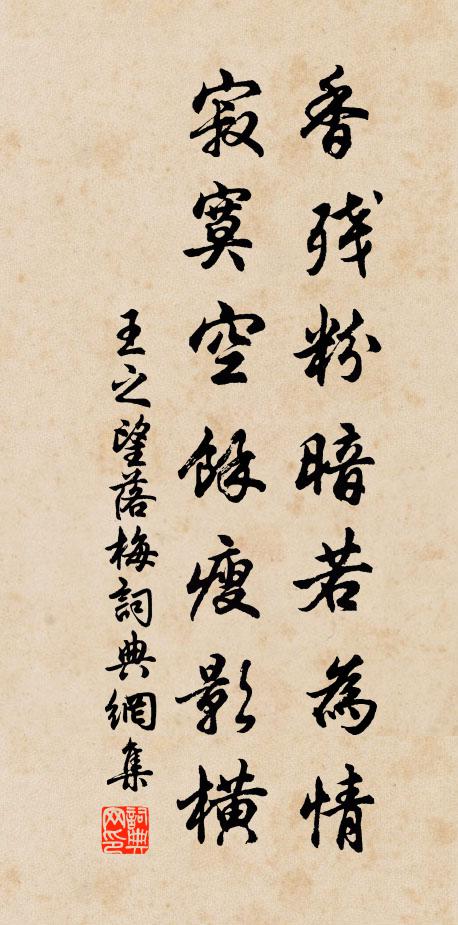 香殘粉暗若為情
寂寞空餘瘦影橫
王之望落梅詞典網集
詞典網印